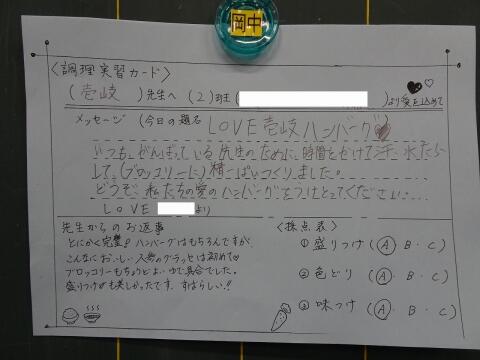 岡中
〈調理実習カード〉
(壱岐)先生へ (2)班( )より愛を込めて
メッセージ (今日の題名 LOVE壱岐ハンバーグ)
いつも、がんばっている先生のために、時間をかけて汗水たら
して、(ブロッコリーに)精一ぱいつくりました。
どうぞ私たちの愛のハンバーグをうけとってください…
LOVE より
先生からのお返事
とにかく完璧!ハンバーグはもちろんですが、
こんなにおいしい人参のグラッセは初めて♡
ブロッコリーもちょうどよいゆで具合でした。
盛りつけも美しかったです。すばらしい!!
〈採点表〉
①盛りつけ(A・B・C)
②色どり(A・B・C)
③味つけ(A・B・C)